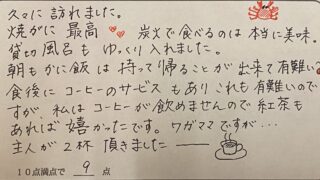 久々に 訪れました。
焼がに 最高 炭火で食べるのは 本当に美味。
貸切風呂も ゆっくり 入れました。
朝もかに飯は 持って帰ることが 出来て有難い?
食後に コーヒーのサービス もあり これも有難いので
すが、私は コーヒーが飲めませんので 紅茶も
あれば 嬉しかったです。ワガママですが‥‥
主人が 2杯 頂きました ――
10点満点で 9 点